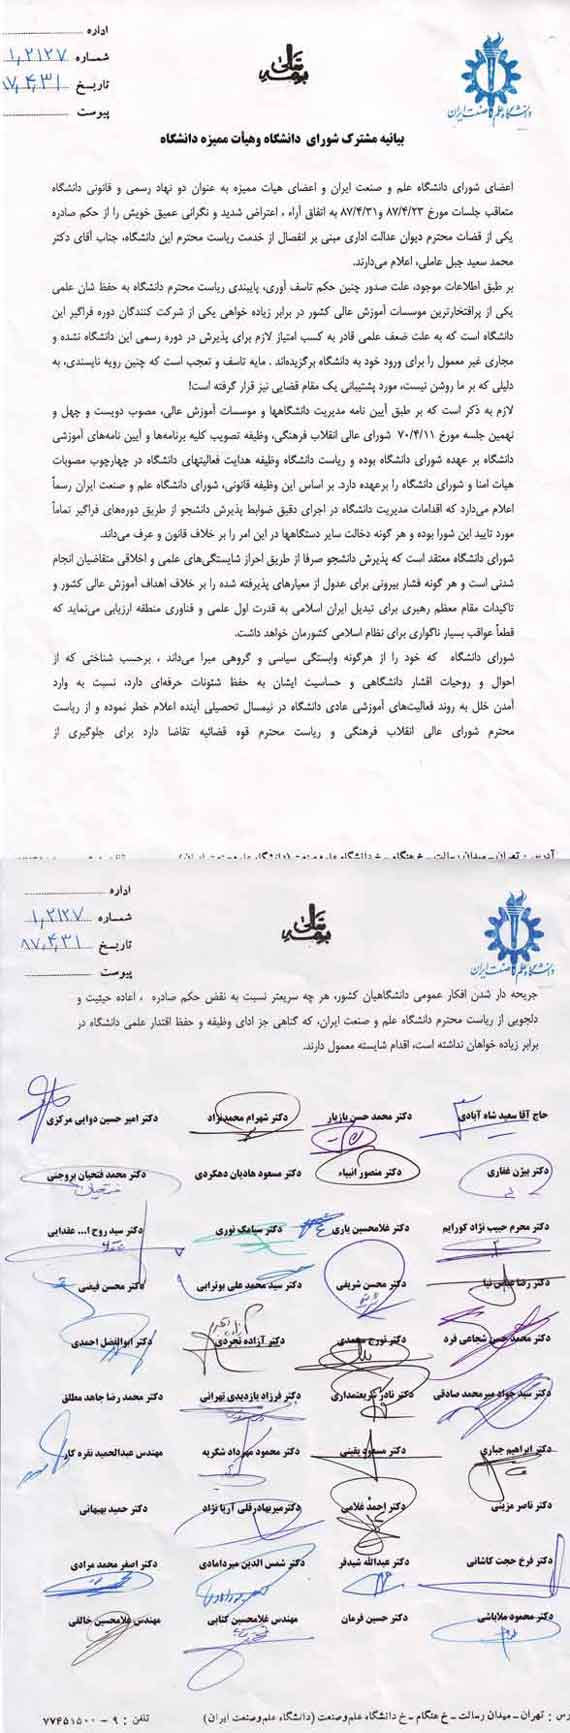 اداره
شماره ۱٫۲۱۲۷
تاریخ ۸۷٫۴٫۳۱
پیوست
بسمه تعالی
دانشگاه علم و صنعت ایران
بیانیه مشترک شورای دانشگاه وهیأت ممیزه دانشگاه
اعضای شورای دانشگاه علم و صنعت ایران و اعضای هیات ممیزه به عنوان دو نهاد رسمی و قانونی دانشگاه
متعاقب جلسات مورخ ۸۷/۴/۲۳ و۸۷/۴/۳۱ به اتفاق آراء ، اعتراض شدید و نگرانی عمیق خویش را از حکم صادره
یکی از قضات محترم دیوان عدالت اداری مبنی بر انفصال از خدمت ریاست محترم این دانشگاه، جناب آقای دکتر
محمد سعید جبل عاملی، اعلام می‌دارند.
بر طبق اطلاعات موجود، علت صدور چنین حکم تاسف آوری، پایبندی ریاست محترم دانشگاه به حفظ شان علمی
یکی از پرافتخارترین موسسات آموزش عالی کشور در برابر زیاده خواهی یکی از شرکت کنندگان دوره فراگیر این
دانشگاه است که به علت ضعف علمی قادر به کسب امتیاز لازم برای پذیرش در دوره رسمی این دانشگاه نشده و
مجاری غیر معمول را برای ورود خود به دانشگاه برگزیده‌اند . مایه تاسف و تعجب است که چنین رویه ناپسندی، به
دلیلی که بر ما روشن نیست، مورد پشتیبانی یک مقام قضایی نیز قرار گرفته است!
لازم به ذکر است که بر طبق آیین نامه مدیریت دانشگاهها و موسسات آموزش عالی، مصوب دویست و چهل و
نهمین جلسه مورخ ۷۰/۴/۱۱ شورای عالی انقلاب فرهنگی، وظیفه تصویب کلیه برنامه‌ها و آیین نامه‌های آموزشی
دانشگاه بر عهده شورای دانشگاه بوده و ریاست دانشگاه وظیفه هدایت فعالیتهای دانشگاه در چهارچوب مصوبات
هیات امنا و شورای دانشگاه را برعهده دارد. بر اساس این وظیفه قانونی، شورای دانشگاه علم و صنعت ایران رسماً
اعلام می‌دارد که اقدامات مدیریت دانشگاه در اجرای دقیق ضوابط پذیرش دانشجو از طریق دوره‌های فراگیر تماماً
مورد تایید این شورا بوده و هر گونه دخالت سایر دستگاهها در این امر را بر خلاف قانون و عرف می‌داند.
شورای دانشگاه معتقد است که پذیرش دانشجو صرفا از طریق احراز شایستگی‌های علمی و اخلاقی متقاضیان انجام
شدنی است و هر گونه فشار بیرونی برای عدول از معیارهای پذیرفته شده را بر خلاف اهداف آموزش عالی کشور و
تاکیدات مقام معظم رهبری برای تبدیل ایران اسلامی به قدرت اول علمی و فناوری منطقه ارزیابی می‌نماید که
قطعاً عواقب بسیار ناگواری برای نظام اسلامی کشورمان خواهد داشت.
شورای دانشگاه که خود را از هرگونه وابستگی سیاسی و گروهی مبرا می‌داند ، برحسب شناختی که از
احوال و روحیات اقشار دانشگاهی و حساسیت ایشان به حفظ شئونات حرفه‌ای دارد، نسبت به وارد
آمدن خلل به روند فعالیت‌های آموزشی عادی دانشگاه در نیمسال تحصیلی آینده اعلام خطر نموده و از ریاست
محترم شورای عالی انقلاب فرهنگی و ریاست محترم قوه قضائیه تقاضا دارد برای جلوگیری از
آدرس : تهران ـ میدان رسالت ـ خ هنگام ـ خ دانشگاه علم وصنعت (دانشگاه علم وصنعت ایران)
اداره
شماره ۱٫۲۱۲۷
تاریخ ۸۷٫۴٫۳۱
پیوست
بسمه تعالی
دانشگاه علم و صنعت ایران
جریحه دار شدن افکار عمومی دانشگاهیان کشور، هر چه سریعتر نسبت به نقض حکم صادره ، اعاده حیثیت و
دلجویی از ریاست محترم دانشگاه علم و صنعت ایران، که گناهی جز ادای وظیفه و حفظ اقتدار علمی دانشگاه در
برابر زیاده خواهان نداشته است، اقدام شایسته معمول دارند.
حاج آقا سعید شاه آبادی دکتر محمد حسن بازیار دکتر شهرام محمدنژاد دکتر امیر حسین دوایی مرکزی
دکتر بیژن غفاری دکتر منصور انبیاء دکتر مسعود هادیان دهکردی دکتر محمد فتحیان بروجنی
دکتر محرم حبیب نژاد کورایم دکتر غلامحسین یاری دکتر سیامک نوری دکتر سید روح ا... عقدایی
دکتر رضا عباس نیا دکتر محسن شریفی دکتر سید محمد علی بوترابی دکتر محسن فیضی
دکتر محمد حسن شجاعی فرد دکتر تورج محمدی دکتر آزاده تجردی دکتر ابوالفضل احمدی
دکتر سید جواد میرمحمد صادقی دکتر نادر شریعتمداری دکتر فرزاد بازدیدی تهرانی دکتر محمد رضا جاهد مطلق
دکتر ابراهیم جباری دکتر مسعود یقینی دکتر محمود مهرداد شکریه مهندس عبدالحمید نقره کار
دکتر ناصر مزینی دکتر احمد غلامی دکتر میربهادرقلی آریا نژاد دکتر حمید بهبهانی
دکتر فرخ حجت کاشانی دکتر عبدالله شیدفر دکتر شمس الدین میردامادی دکتر اصغر محمد مرادی
دکتر محمود ملاباشی دکتر حسین فرمان مهندس غلامحسین کتابی مهندس غلامحسین خالقی
رس : تهران ـ میدان رسالت ـ خ هنگام ـ خ دانشگاه علم وصنعت (دانشگاه علم وصنعت ایران) تلفن : ۹ - ۷۷۴۵۱۵۰۰